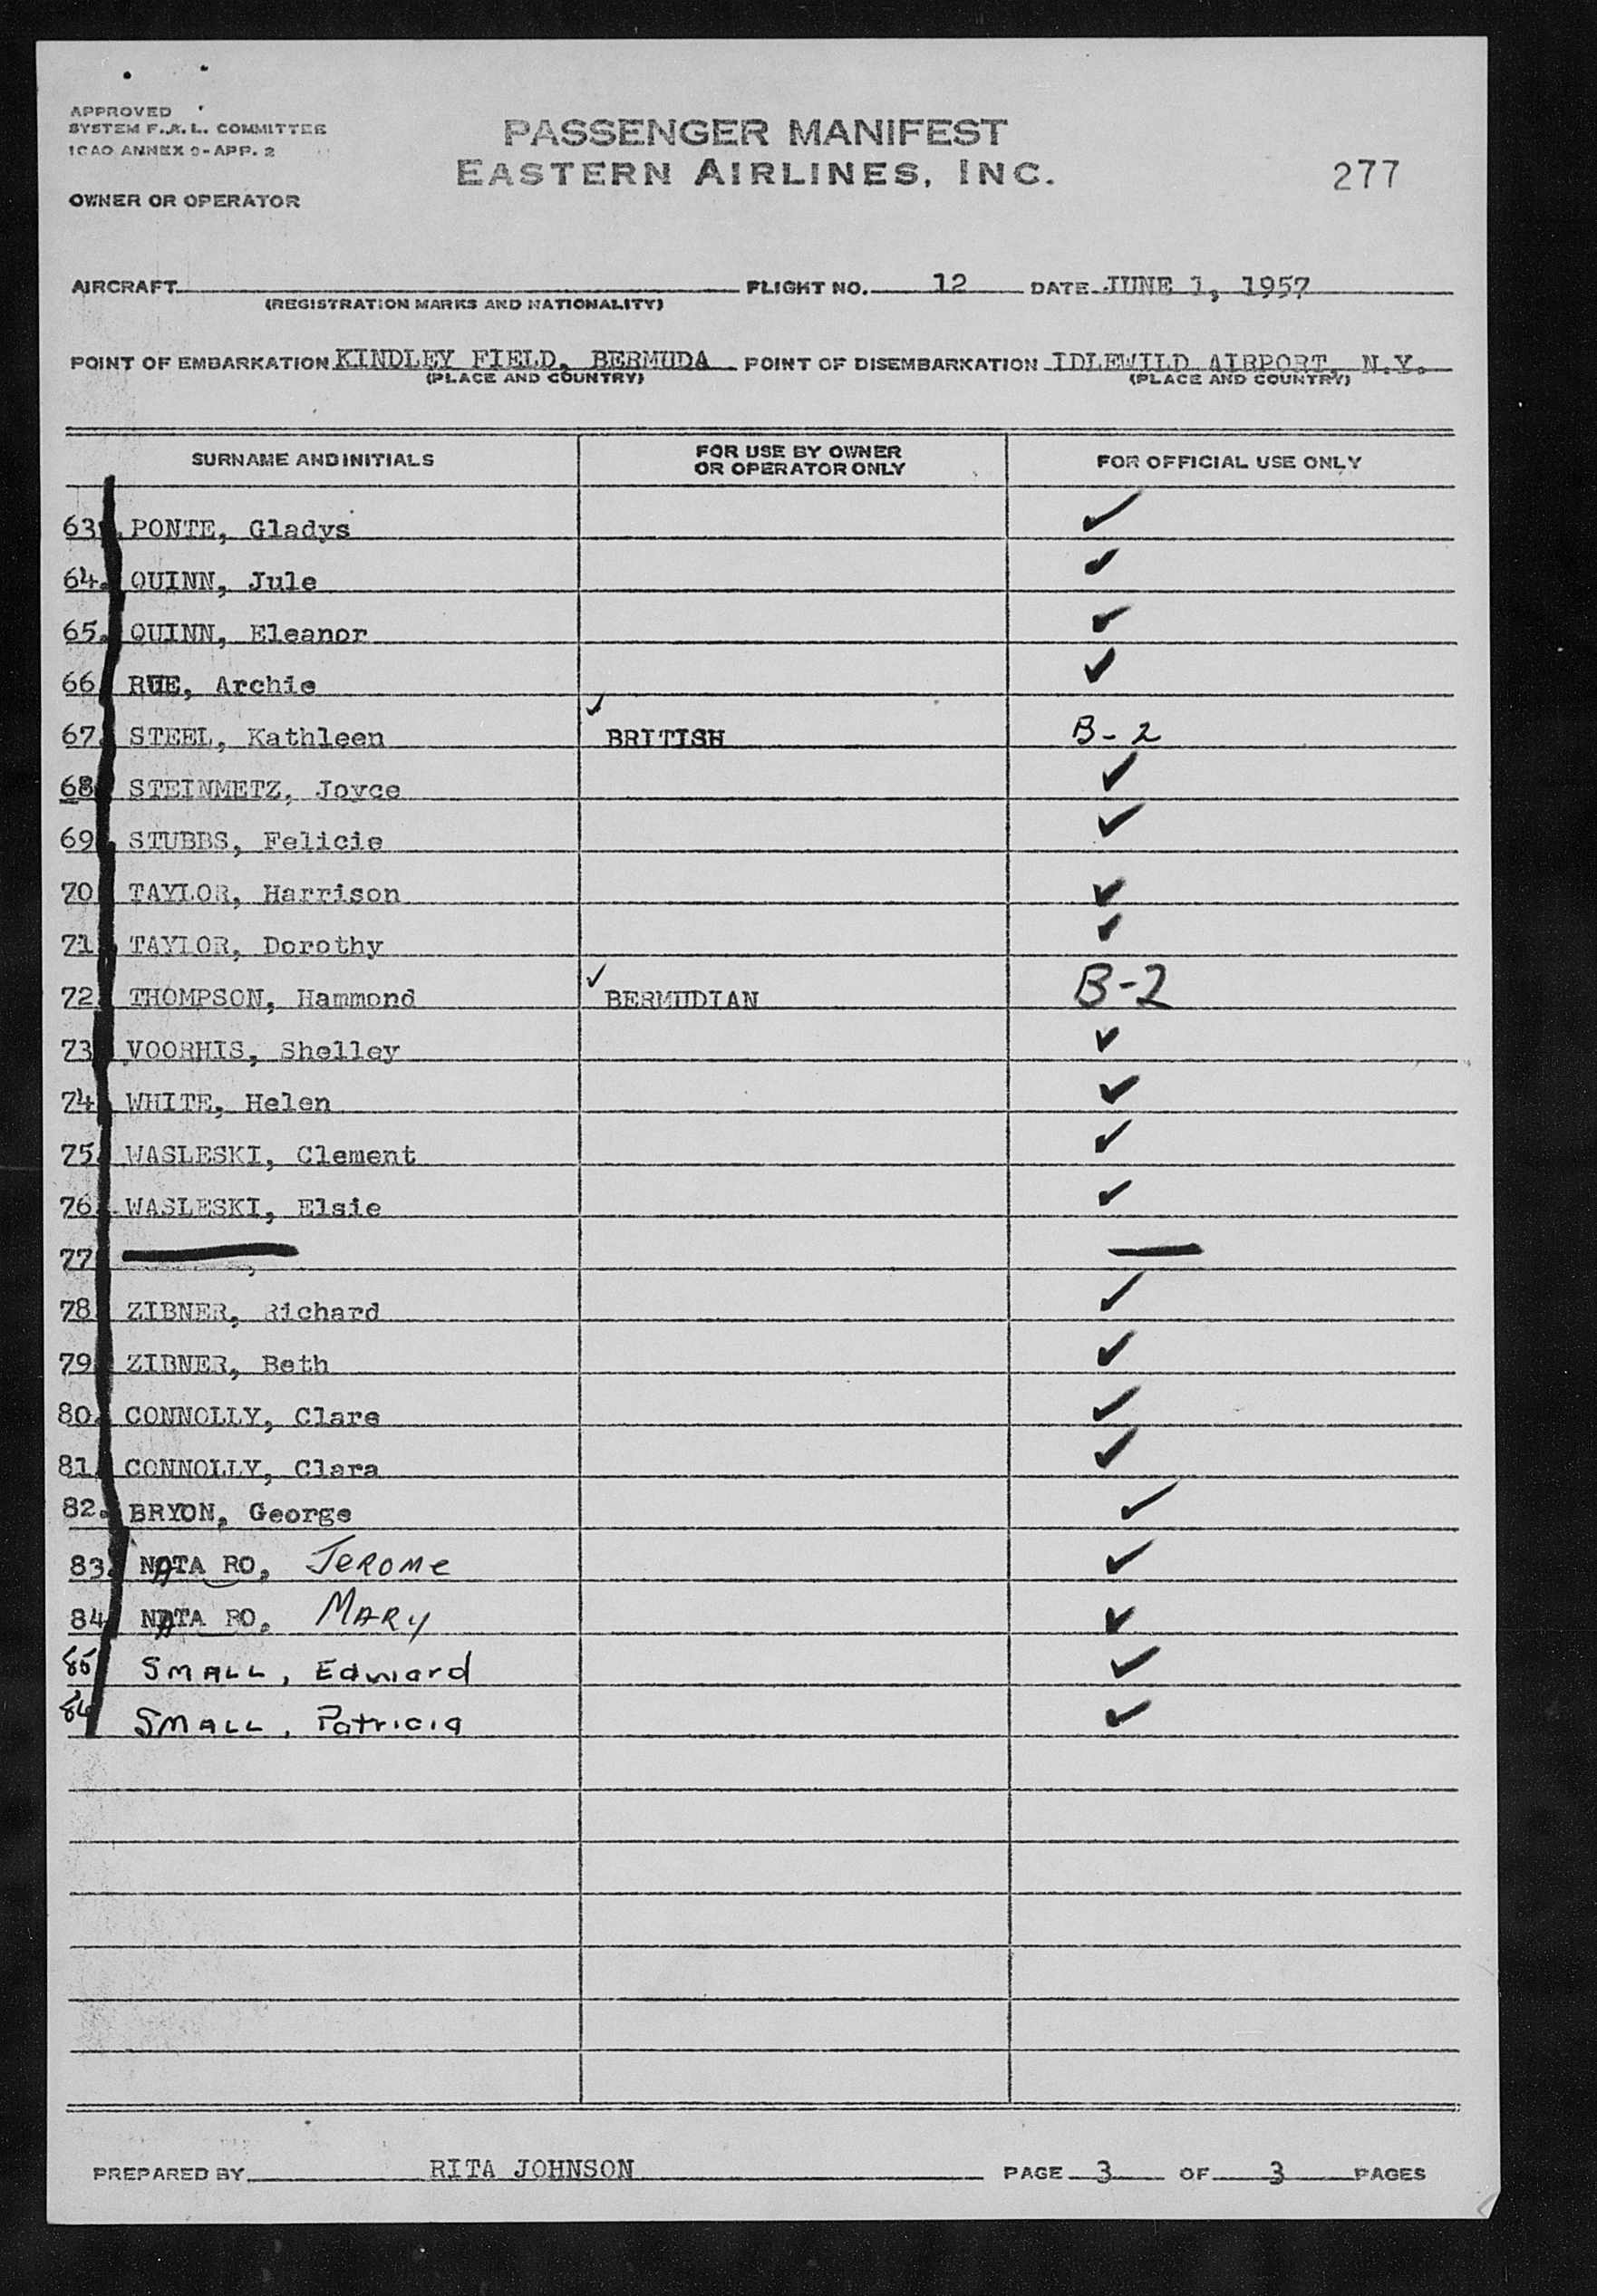 APPROVED
SYSTEM F.A.L. COMMITTEE
ICAO ANNEX 9-APP. 2
PASSENGER MANIFEST
EASTERN AIRLINES, INC.
277
OWNER OR OPERATOR
AIRCRAFT FLIGHT NO. 12 DATE JUNE 1, 1957
(REGISTRATION MARKS AND NATIONALITY)
POINT OF EMBARKATION KINDLEY FIELD, BERMUDA POINT OF DISEMBARKATION IDLEWILD AIRPORT, N.Y.
(PLACE AND COUNTRY) (PLACE AND COUNTRY)
SURNAME AND INITIALS FOR USE BY OWNER OR OPERATOR ONLY FOR OFFICIAL USE ONLY
63. PONTE, Gladys ✓
64. QUINN, Jule ✓
65. QUINN, Eleanor ✓
66 RUE, Archie ✓
67. STEEL, Kathleen ✓ BRITISH B-2
68 STEINMETZ, Joyce ✓
69 STUBBS, Felicie ✓
70 TAYLOR, Harrison ✓
71 TAYLOR, Dorothy ✓
72. THOMPSON, Hammond ✓ BERMUDIAN B-2
73 VOORHIS, Shelley ✓
74 WHITE, Helen ✓
75. WASLESKI, Clement ✓
76. WASLESKI, Elsie ✓
77
78 ZIBNER, Richard ✓
79 ZIBNER, Beth ✓
80. CONNOLLY, Clare ✓
81. CONNOLLY, Clara ✓
82. BRYON, George ✓
83. NATA RO, Jerome ✓
84 NATA RO, MARY ✓
85 SMALL, Edward ✓
86 SMALL, Patricia ✓
PREPARED BY RITA JOHNSON PAGE 3 OF 3 PAGES